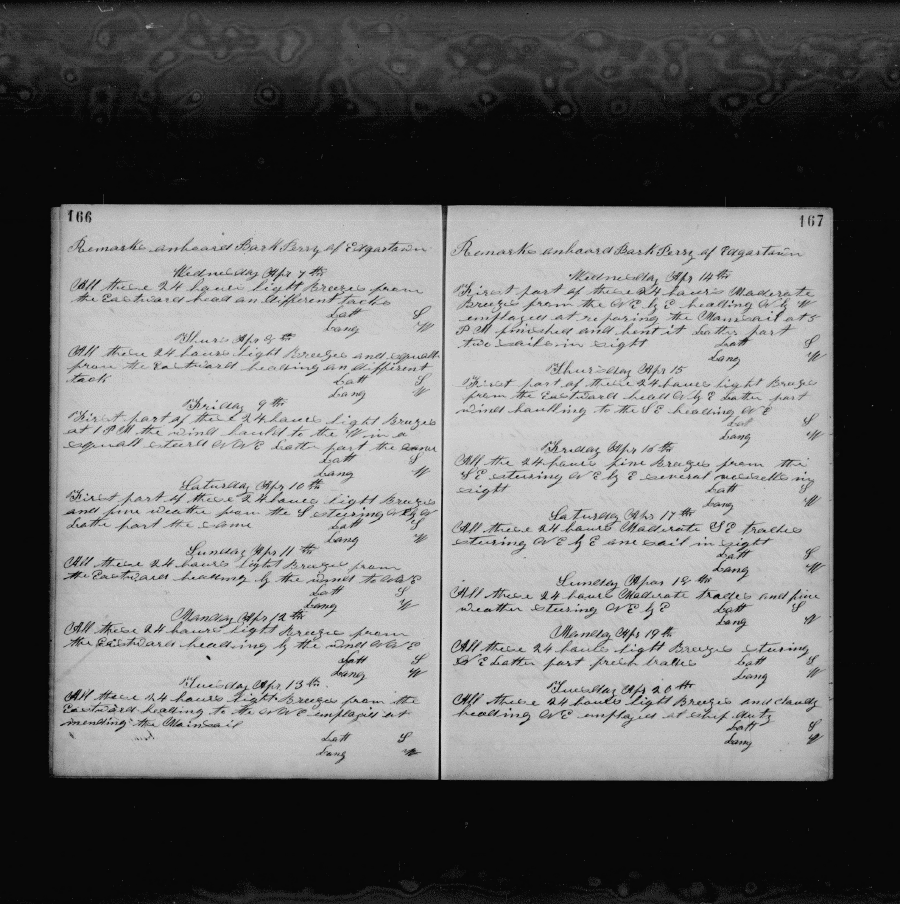 166
Remarks onboard Bark Perry of Edgartown
Wednesday Apr 7th
All these 24 hours light Breeze from
the Eastward head on different tacks
Latt S
Long W
Thurs Apr 8th
All these 24 hours light Breeze and squalls
from the Eastward heading on different
tack
Latt S
Long W
Friday 9th
First part of these 24 hours light Breeze
at 1 P M the wind hauld to the W in a
squall steerd N N E Latter part the same
Latt S
Long W
Saturday Apr 10th
First part of these 24 hours light Breeze
and fine weather from the S steering N by N
Latter part the same Latt S
Long W
Sunday Apr 11th
All these 24 hours light Breeze from
the Eastward heading by the wind to N N E
Latt S
Long W
Monday Apr 12th
All these 24 hours light Breeze from
the Eastward heading by the wind N N E
Latt S
Long W
Tuesday Apr 13th
All these 24 hours light Breeze from the
Eastward heading to the N N E employed at
mending the Mainsail
Latt S
Long W
167
Remarks onboard Bark Perry of Edgartown
Wednesday Apr 14th
First part of these 24 hours Moderate
Breeze from the N E by E heading N by W
employed at reparing the Mainsail at 5
P M finished and bent it Latter part
two sails in sight Latt S
Long W
Thursday Apr 15
First part of these 24 hours light Breeze
from the Eastward head N by E Latter part
wind haulling to the S E heading N E
Lat S
Long W
Friday Apr 16th
All the 24 hours fine Breeze from the
S E steering N E by E several vessells in
sight Latt S
Long W
Saturday Apr 17th
All these 24 hours Moderate S E trades
steering N E by E one sail in sight
Latt S
Long W
Sunday Apr 18th
All these 24 hours Moderate trades and fine
weather steering N E by E Latt S
Long W
Monday Apr 19th
All these 24 hours light Breeze steering
N E Latter part fresh trades Latt S
Long W
Tuesday Apr 20th
All these 24 hours light Breeze and cloudy
heading N E employed at ship duty
Latt S
Long W